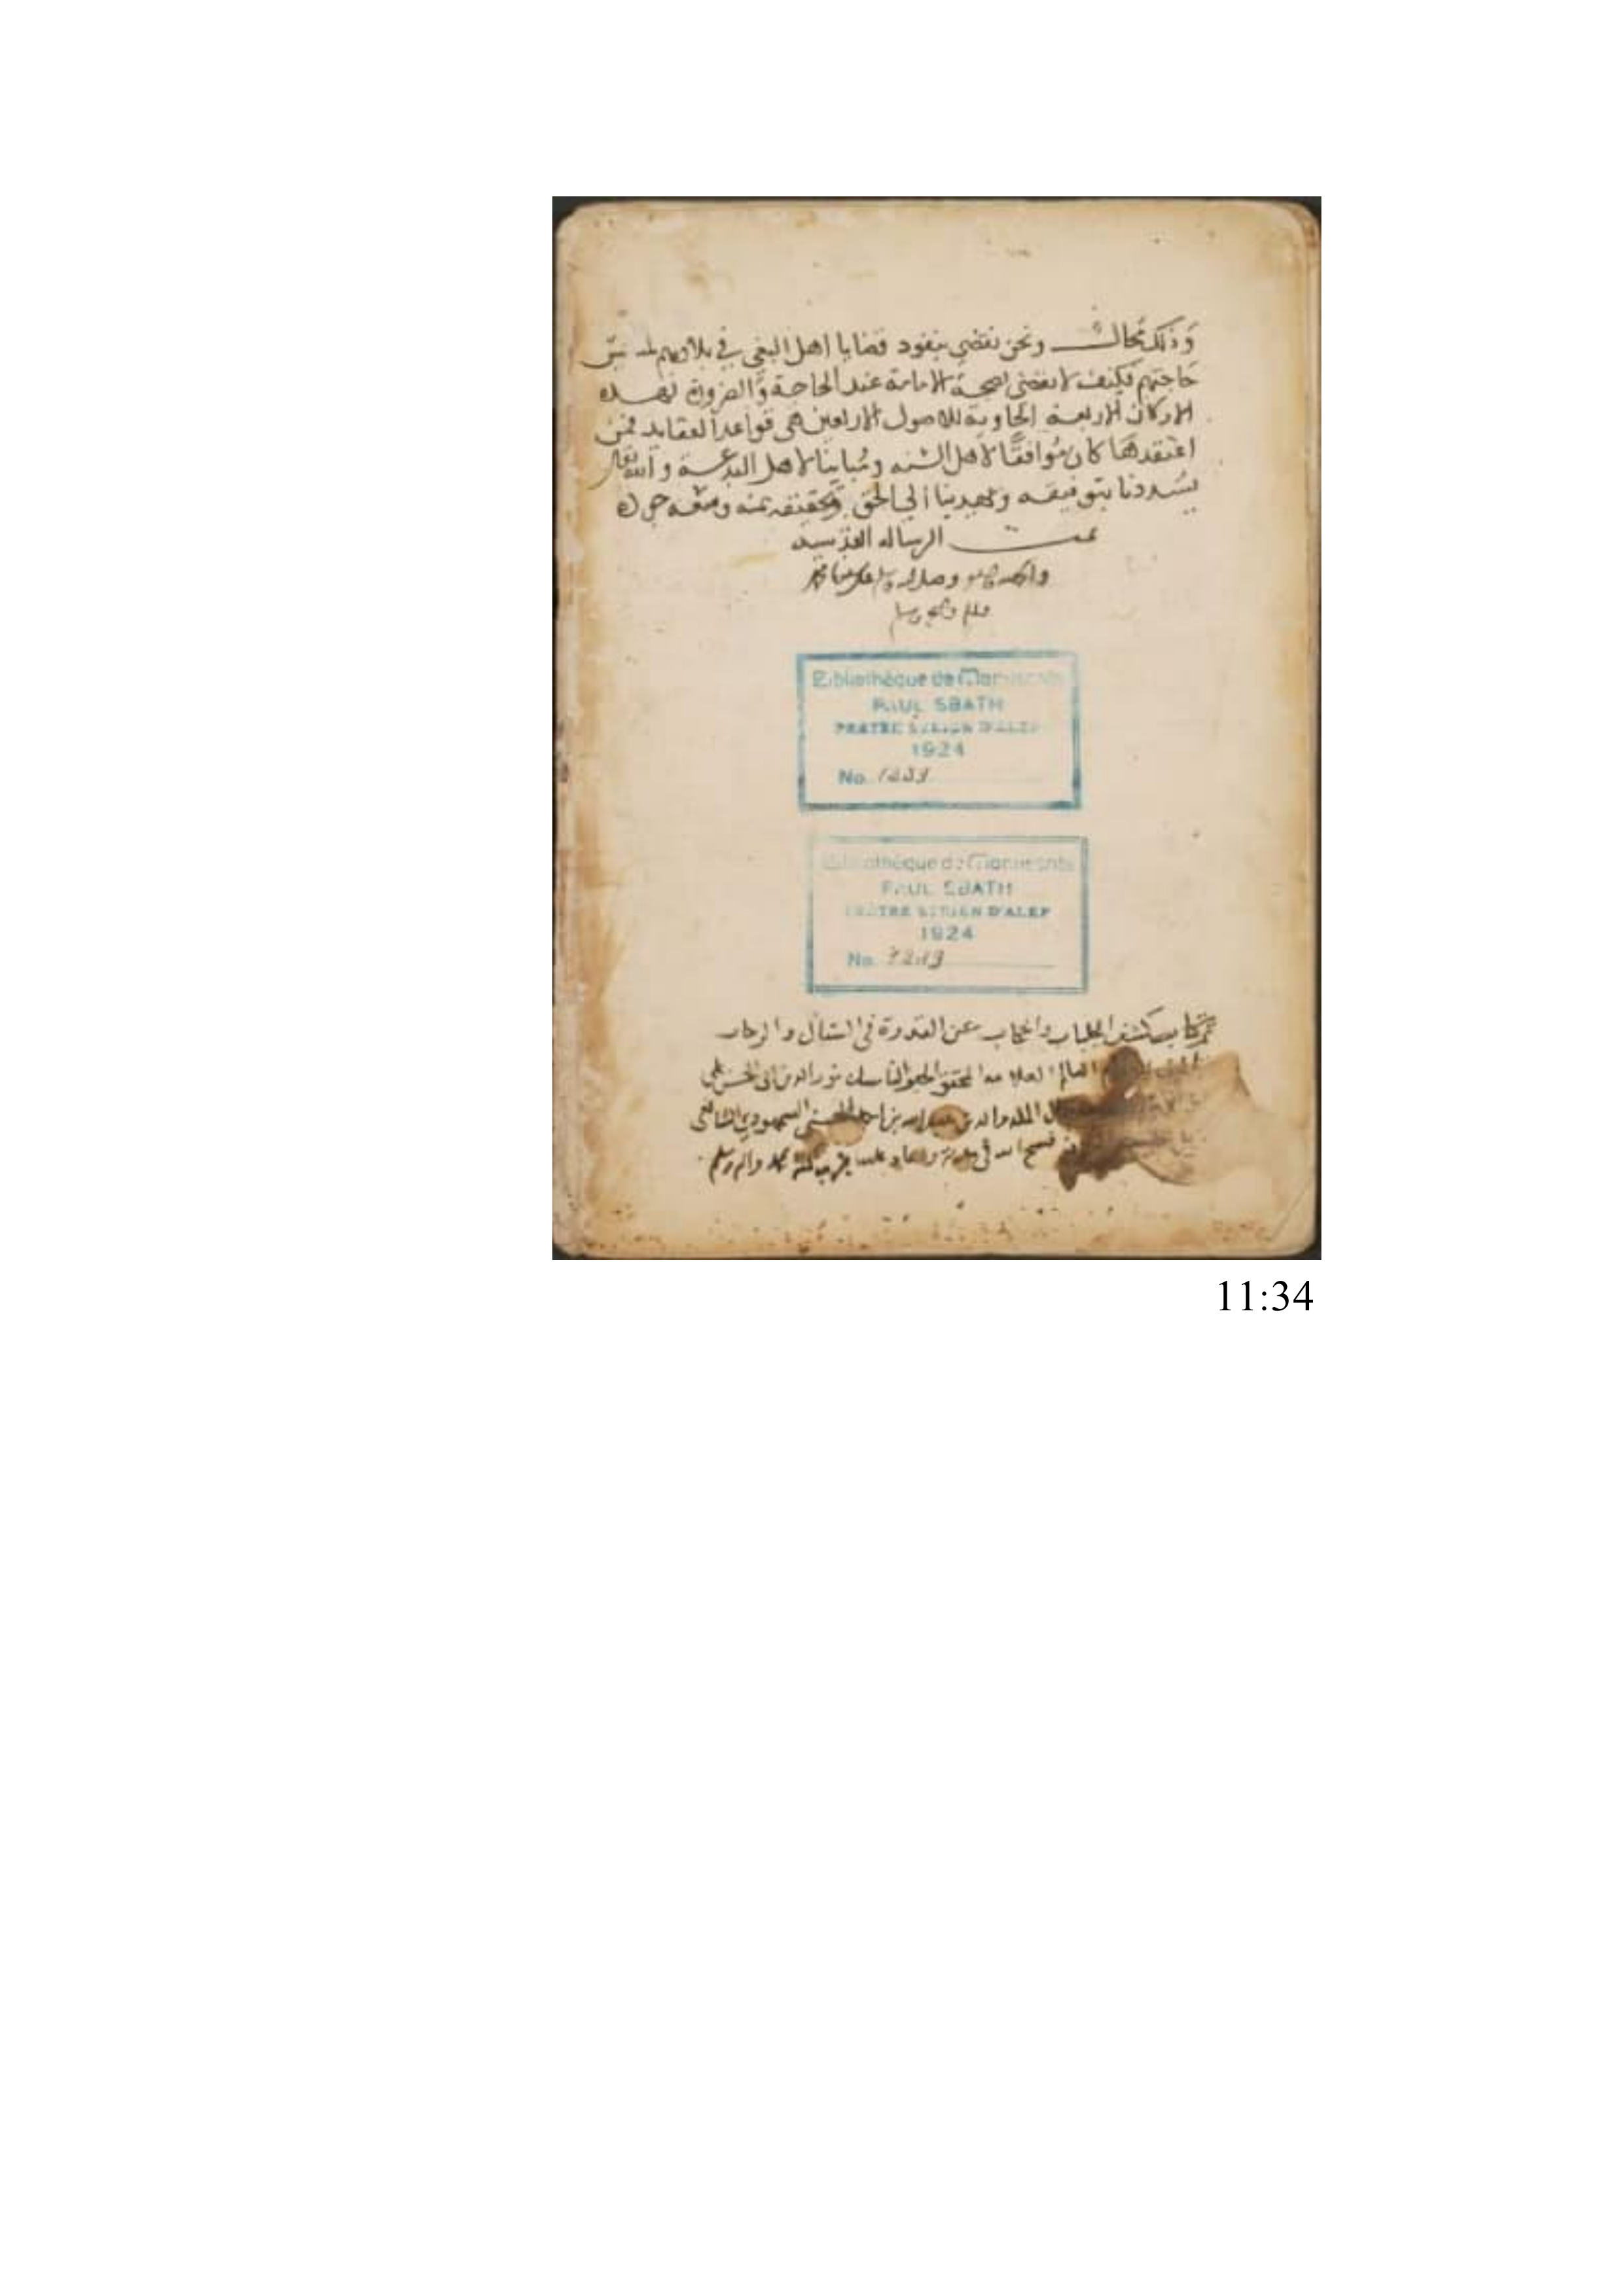 وذلك محال ونحن نقضي بنفود قضايا اهل البغي في بلادهم لمسيس
حاجتهم فكيف لا نقضي بصحة الامامة عند الحاجة والضرورة فهذه
الاركان الاربعة الحاوية للاصول الاربعين هي قواعد العقايد فمن
اعتقدها كان موافقا لاهل السنه ومباينا لاهل البدعة والله تعالى
يسددنا بتوفيقه ويهدينا الى الحق وتحقيقه بمنه
تمت الرساله القدسيه
وصلى الله
Bibliothèque de Manuscrits
PAUL SBATH
PRÊTRE SYRIEN D'ALEP
1924
No.
Bibliothèque de Manuscrits
PAUL SBATH
PRÊTRE SYRIEN D'ALEP
1924
No.
كتاب كشف الجلباب والحجاب عن القدوة في الشباك والرحاب
العالم العلامه المحقق الناسك نور الدين ابي الحسن علي
عبد الله بن احمد الحسني السمهودي الشافعي
فسح الله في مدته محمد واله وسلم
11:34